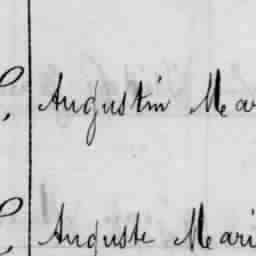 Augustin Ma
Auguste Mari